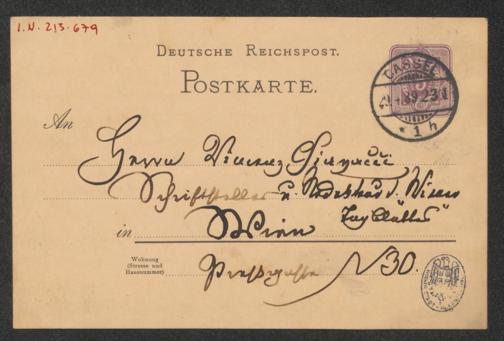 I.N. 213.679
DEUTSCHE REICHSPOST.
POSTKARTE.
CASSEL
89
* 1 h
An
Herrn Vincenz
Schriftsteller u. Redakteur d. Wiener
Tagblattes
in Wien
Wohnung
(Strasse und
Hausnummer)
Pressgasse N 30.